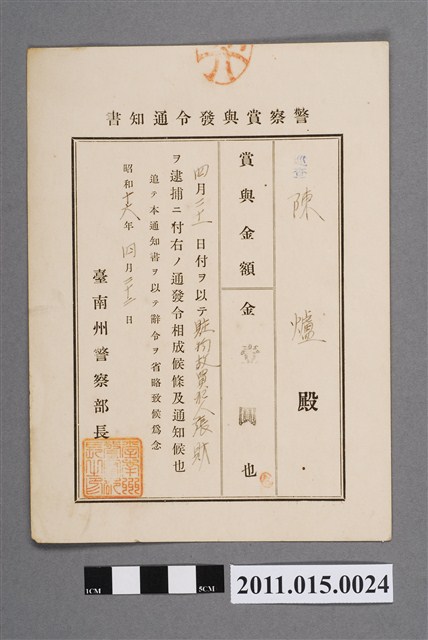 警察賞與發令通知書
巡査 陳 爐 殿
賞與金額 金 壹 圓 也
四月二十一日付ヲ以テ贓物故買犯人張財
ヲ逮捕ニ付右ノ通發令相成候條及通知候也
追テ本通知書ヲ以テ辭令ヲ省略致候爲念
昭和十六年四月二十二日
臺南州警察部長
1CM
5CM
2011.015.0024